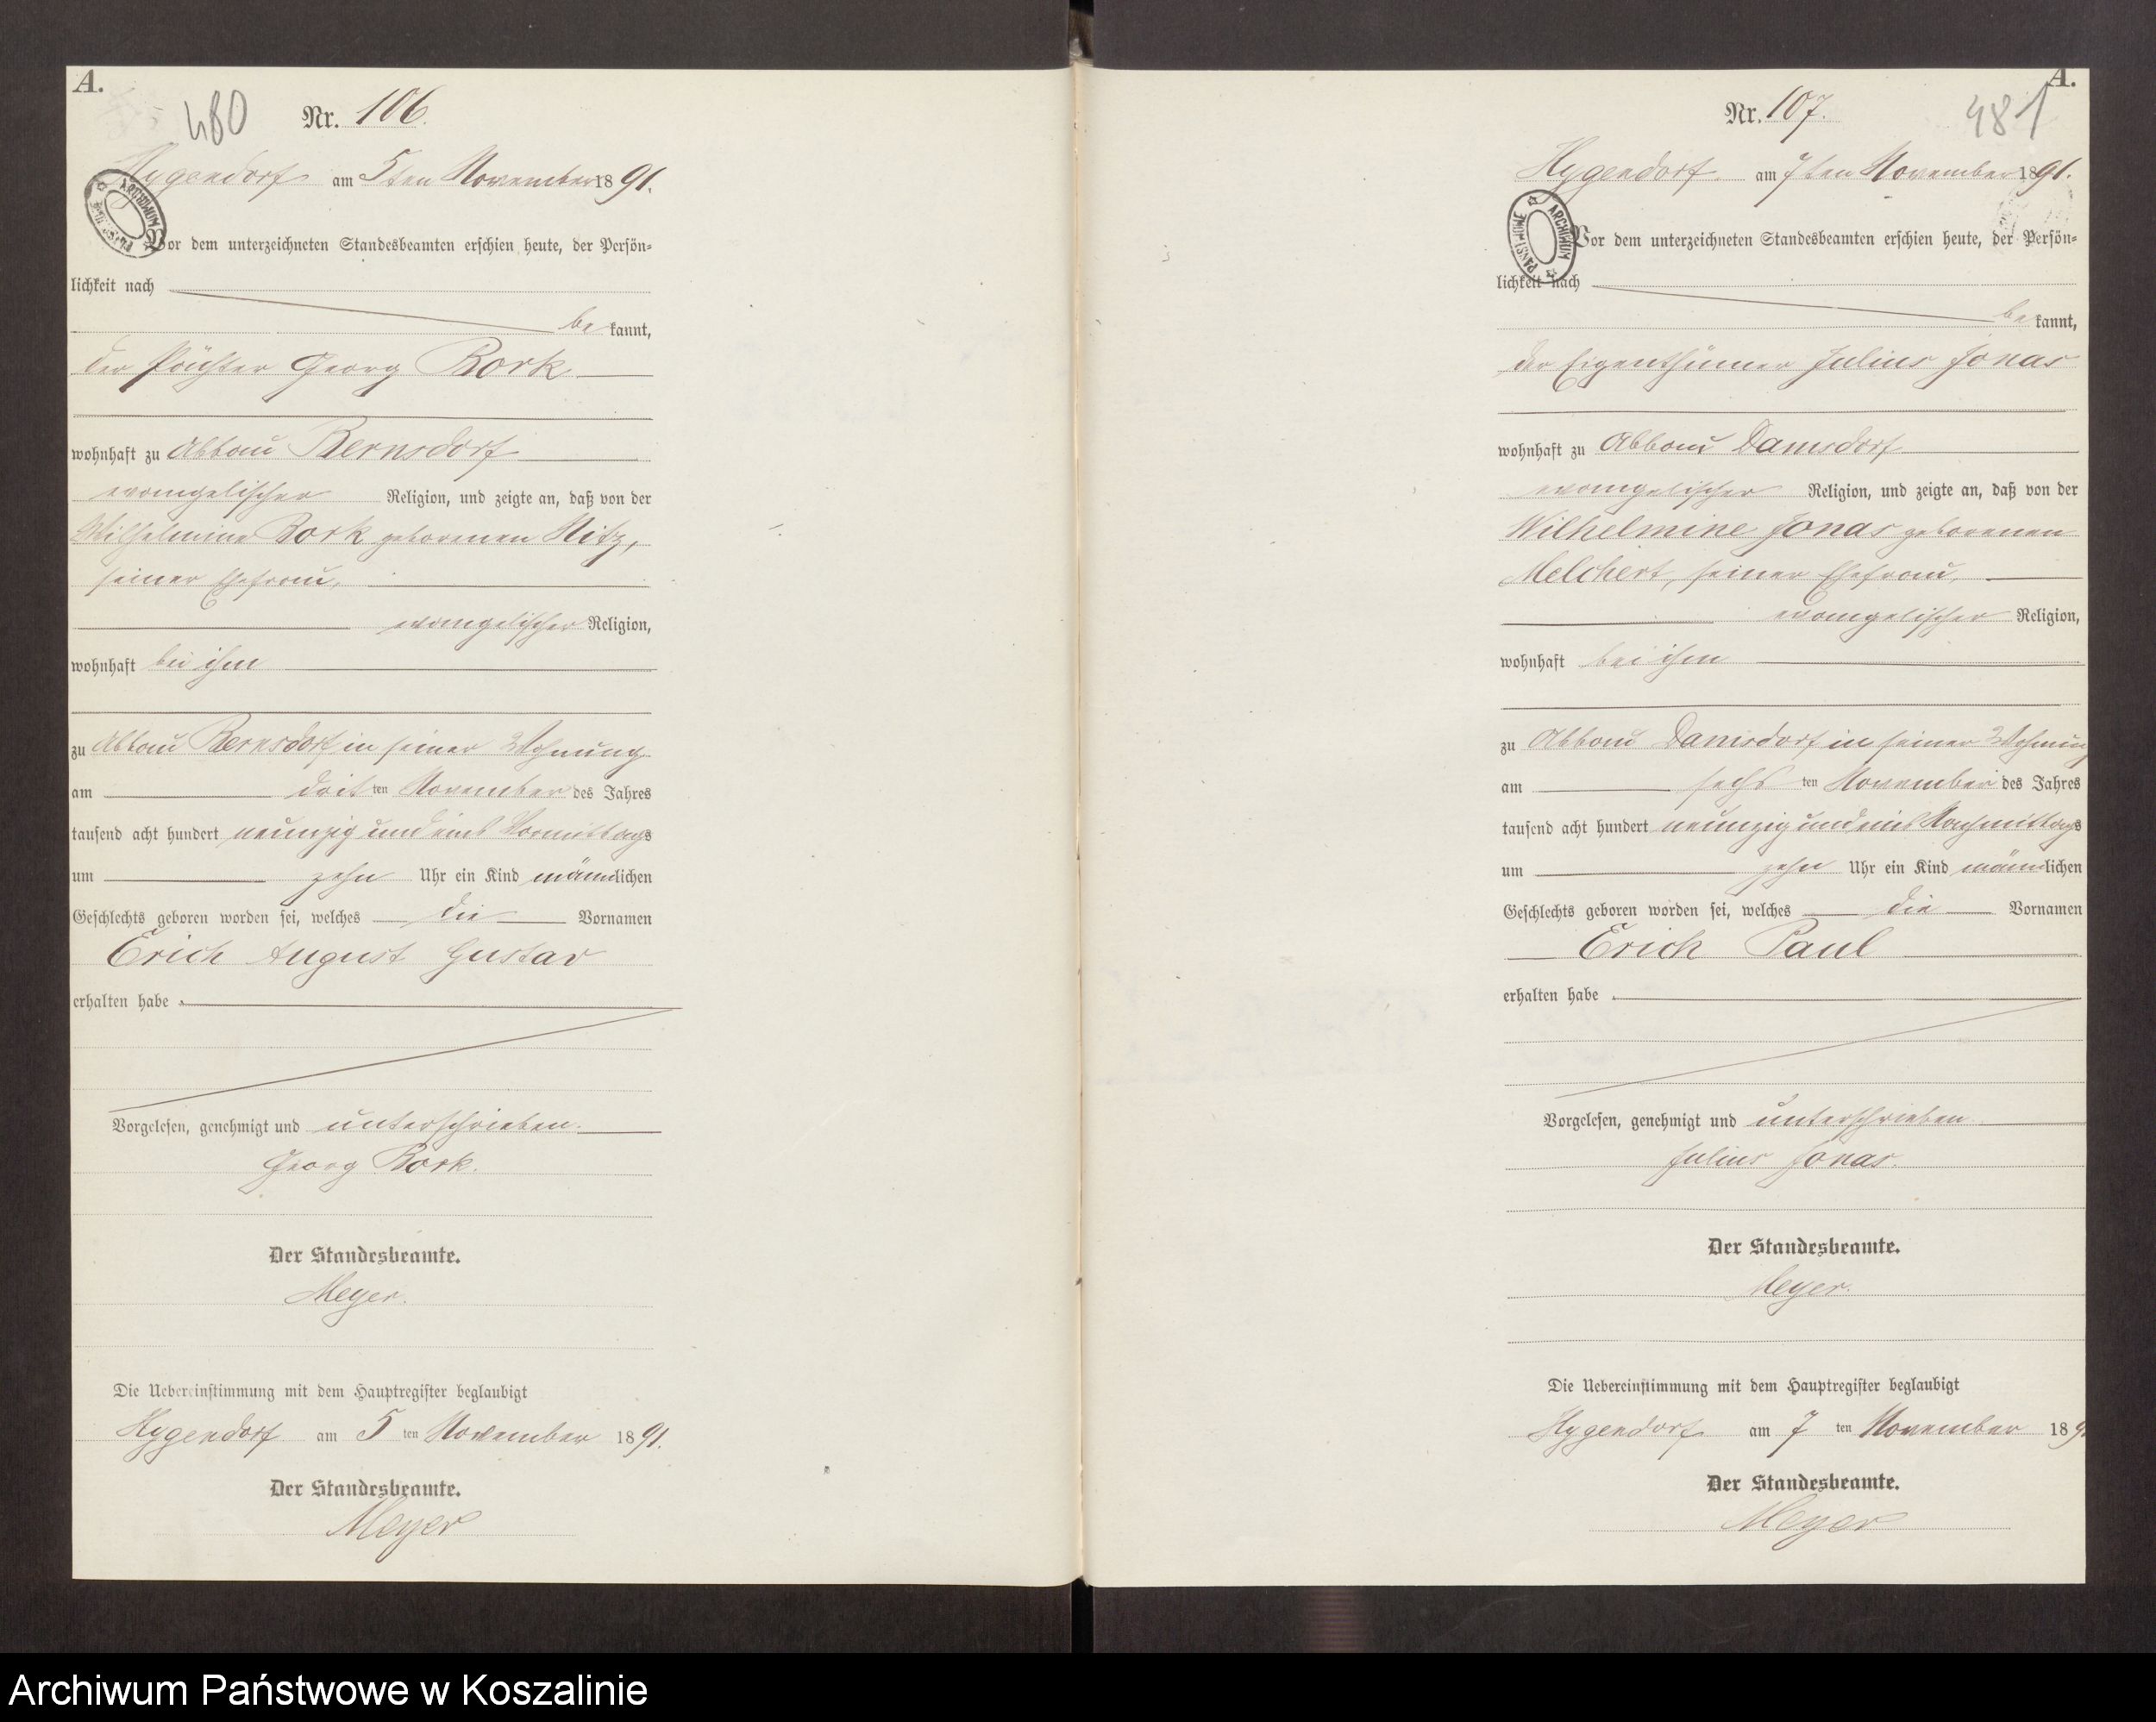 A.
480
Nr. 106.
Hygendorf am 5ten November 1891.
Vor dem unterzeichneten Standesbeamten erschien heute, der Persön=
lichkeit nach
be kannt,
der Pächter Georg Bork
wohnhaft zu Abbau Bernsdorf
evangelischer Religion, und zeigte an, daß von der
Wilhelmine Bork geborenen Nitz,
seiner Ehefrau,
evangelischer Religion,
wohnhaft bei ihm
zu Abbau Bernsdorf in seiner Wohnung
am drit ten November des Jahres
tausend acht hundert neunzig und eins Vormittags
um zehn Uhr ein Kind männlichen
Geschlechts geboren worden sei, welches die Vornamen
Erich August Gustav
erhalten habe
Vorgelesen, genehmigt und unterschrieben.
Georg Bork.
Der Standesbeamte.
Meyer.
Die Uebereinstimmung mit dem Hauptregister beglaubigt
Hygendorf am 5 ten November 1891.
Der Standesbeamte.
Meyer
A.
481
Nr. 107.
Hygendorf am 7ten November 1891.
ARCHIWUM PAŃSTWOWE
Vor dem unterzeichneten Standesbeamten erschien heute, der Persön=
lichkeit nach
be kannt,
der Eigenthümer Julius Jonas
wohnhaft zu Abbau Damsdorf
evangelischer Religion, und zeigte an, daß von der
Wilhelmine Jonas geborenen
Melchert, seiner Ehefrau,
evangelischer Religion,
wohnhaft bei ihm
zu Abbau Damsdorf in seiner Wohnung
am sechs ten November des Jahres
tausend acht hundert neunzig und eins Nachmittags
um zehn Uhr ein Kind männlichen
Geschlechts geboren worden sei, welches die Vornamen
Erich Paul
erhalten habe
Vorgelesen, genehmigt und unterschrieben
Julius Jonas.
Der Standesbeamte.
Meyer.
Die Uebereinstimmung mit dem Hauptregister beglaubigt
Hygendorf am 7 ten November 189
Der Standesbeamte.
Meyer
Archiwum Państwowe w Koszalinie